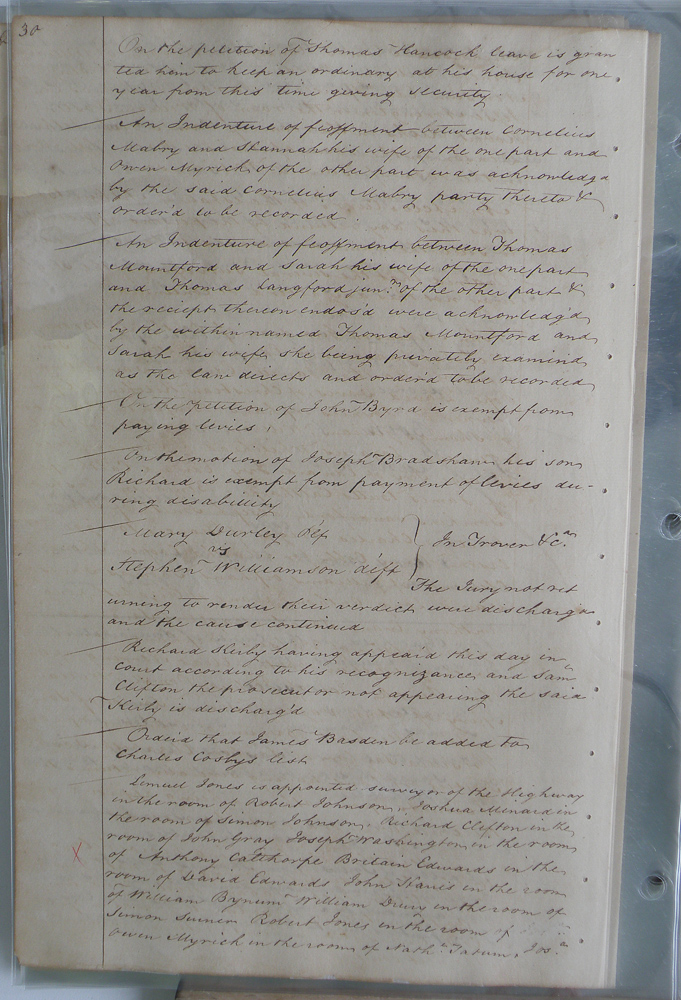 30
On the petition of Thomas Hancock leave is gran
ted him to keep an ordinary at his house for one
year from this time giving security
An Indenture of feoffment between Cornelius
Mabry and Hannah his wife of the one part and
Owen Myrick of the other part was acknowledgd
by the said Cornelius Mabry party thereto &
order'd to be recorded
An Indenture of feoffment between Thomas
Mountford and Sarah his wife of the one part
and Thomas Langford junr. of the other part &
the reciept thereon endors'd were acknowledg'd
by the within named Thomas Mountford and
Sarah his wife she being privately examind
as the law directs and order'd to be recorded
On the Petition of John Byrd is exempt from
paying levies
On the motion of Joseph Bradshaw his son
Richard is exempt from payment of levies du-
ring disability
Mary Durley Plf
vs
Stephen Williamson deft
In Trover &ca.
The Jury not ret
urning to render their verdict were discharg'd
and the cause continued
Richard Kirby having appeard this day in
Court according to his recognizance and Sam
Clifton the prosecutor not appearing the said
Kirby is discharg'd
Orderd that James Basden be added to
Charles Cosby's list
Lemuel Jones is appointed surveyor of the Highway
in the room of Robert Johnson, Joshua Minard in
the room of Simon Johnson, Richard Clifton in the
room of John Gray Joseph Washington in the room
X
of Anthony Calthorpe Britain Edwards in the
room of David Edwards John Harris in the room
of William Bynum William Drury in the room of
Simon Robert Jones in the room of
Owen Myrick in the room of Nath. Tatum, Jos.